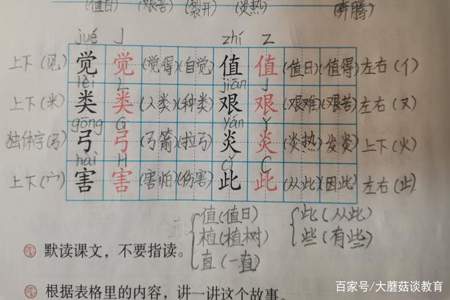 (值日) (艰苦) (裂开) (炎热) (奔腾)
jué J zhí Z
上下(见) 觉 觉 (觉得)(自觉) 值 值 (值日)(值得) 左右(亻)
lèi L jiān J
上下(米) 类 类 (人类)(种类) 艰 艰 (艰难)(艰苦) 左右(又)
gōng G yán Y
独体字(弓) 弓 弓 (弓箭)(拉弓) 炎 炎 (炎热)(发炎) 上下(火)
hài H cǐ C
上下(宀) 害 害 (害怕)(伤害) 此 此 (从此)(因此) 左右(止)
值(值日) 此(从此)
植(植树) 些(有些)
直(一直)
默读课文,不要指读。
根据表格里的内容,讲一讲这个故事。
百家号/大蘑菇谈教育